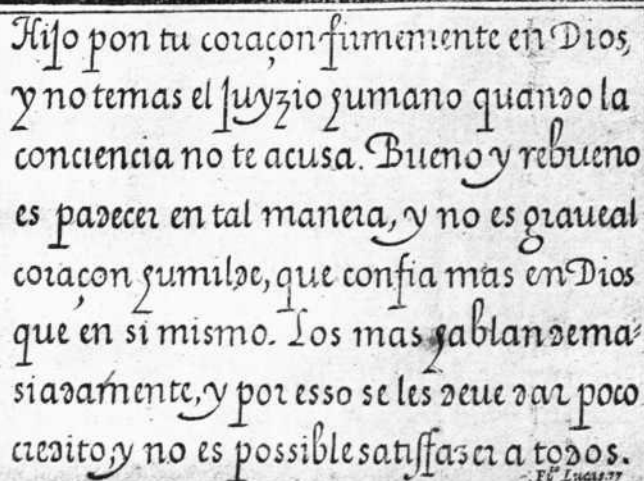 Hijo pon tu coraçon firmemente en Dios,
y no temas el juyzio humano quando la
conciencia no te acusa. Bueno y rebueno
es padecer en tal manera, y no es grave al
coraçon humilde, que confia mas en Dios
que en si mismo. Los mas hablan dema-
siadamente, y por esso se les deve dar poco
credito, y no es possible satisfazer a todos.
Frco Lucas